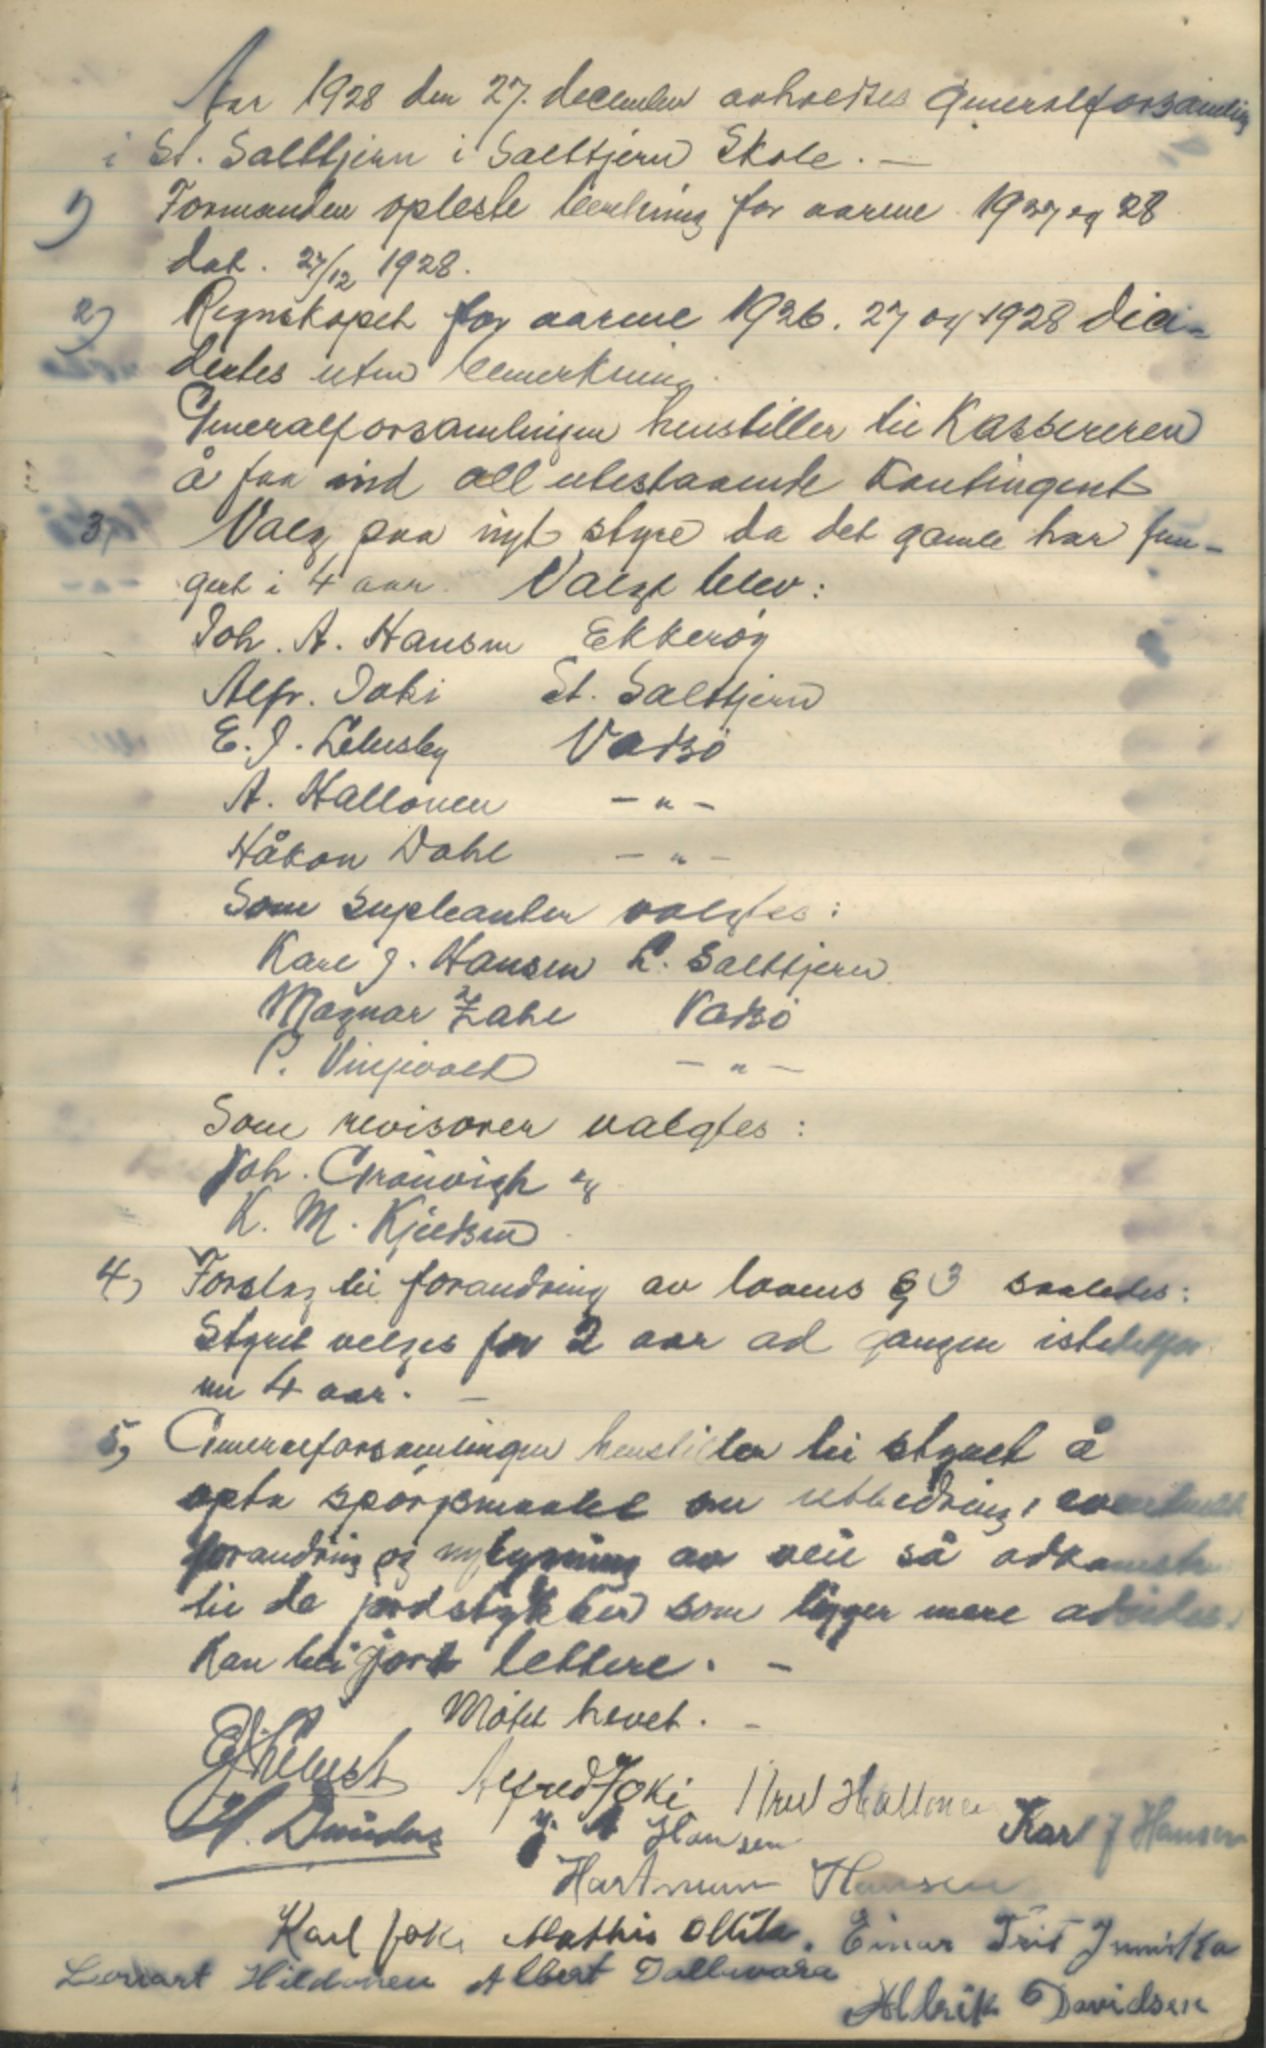 Aar 1928 den 27. december avholdtes Generalforsamling
i St. Salttjern i Salttjern Skole. —
1) Formanden opleste beretning for aarene 1927 og 28
dat. 27/12 1928.
2) Regnskapet for aarene 1926. 27 og 1928 dici-
dertes uten bemerkning.
Generalforsamlingen henstiller til Kassereren
å faa ind all utestaaende Kontingent
3, Valg paa nyt styre da det gamle har fun-
gert i 4 aar. Valgt blev:
Joh. A. Hansen Ekkerøy
Alfr. Joki St. Salttjern
E. J. Vadsö
A. Hallonen — " —
Håkon Dahl — " —
Som supleanter valgtes:
Karl J. Hansen L. Salttjern
Magnar Zahl Vadsö
P. — " —
Som revisorer valgtes:
Joh. Grönvigh og
K. M. Kjeldsen
4, Forslag til forandring av lovens § 3 saaledes:
Styret velges for 2 aar ad gangen istedetfor
nu 4 aar. —
5, Generalforsamlingen henstiller til styret å
opta spörgsmaalet om utbedring, eventuelt
forandring og av veie så adkomsten
til de jordstykker som ligger mere avsides
kan bli gjort lettere. —
Mötet hevet. —
Alfred Joki Hallonen
H. J. A Hansen Karl J Hansen
Hartmann Hansen
Karl Joki Mathis Ollila. Einar
Lennart Hildonen Albert
Albrik Davidsen